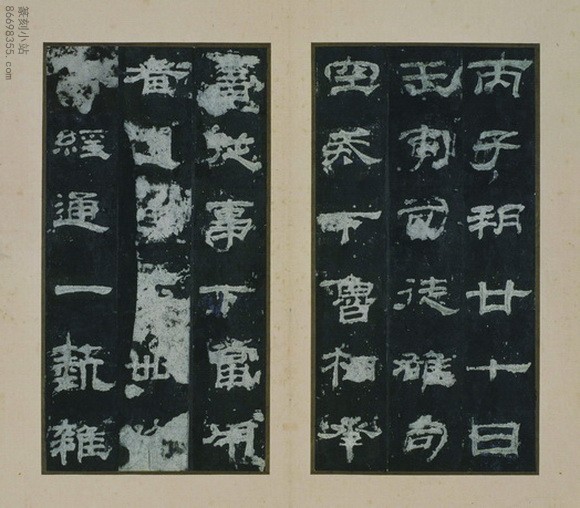 丙子朔廿七日
壬寅司徒雄司
空戒下魯相承
書從事下當用
者卌以
經通一藝雜
篆刻小站
86698355.com